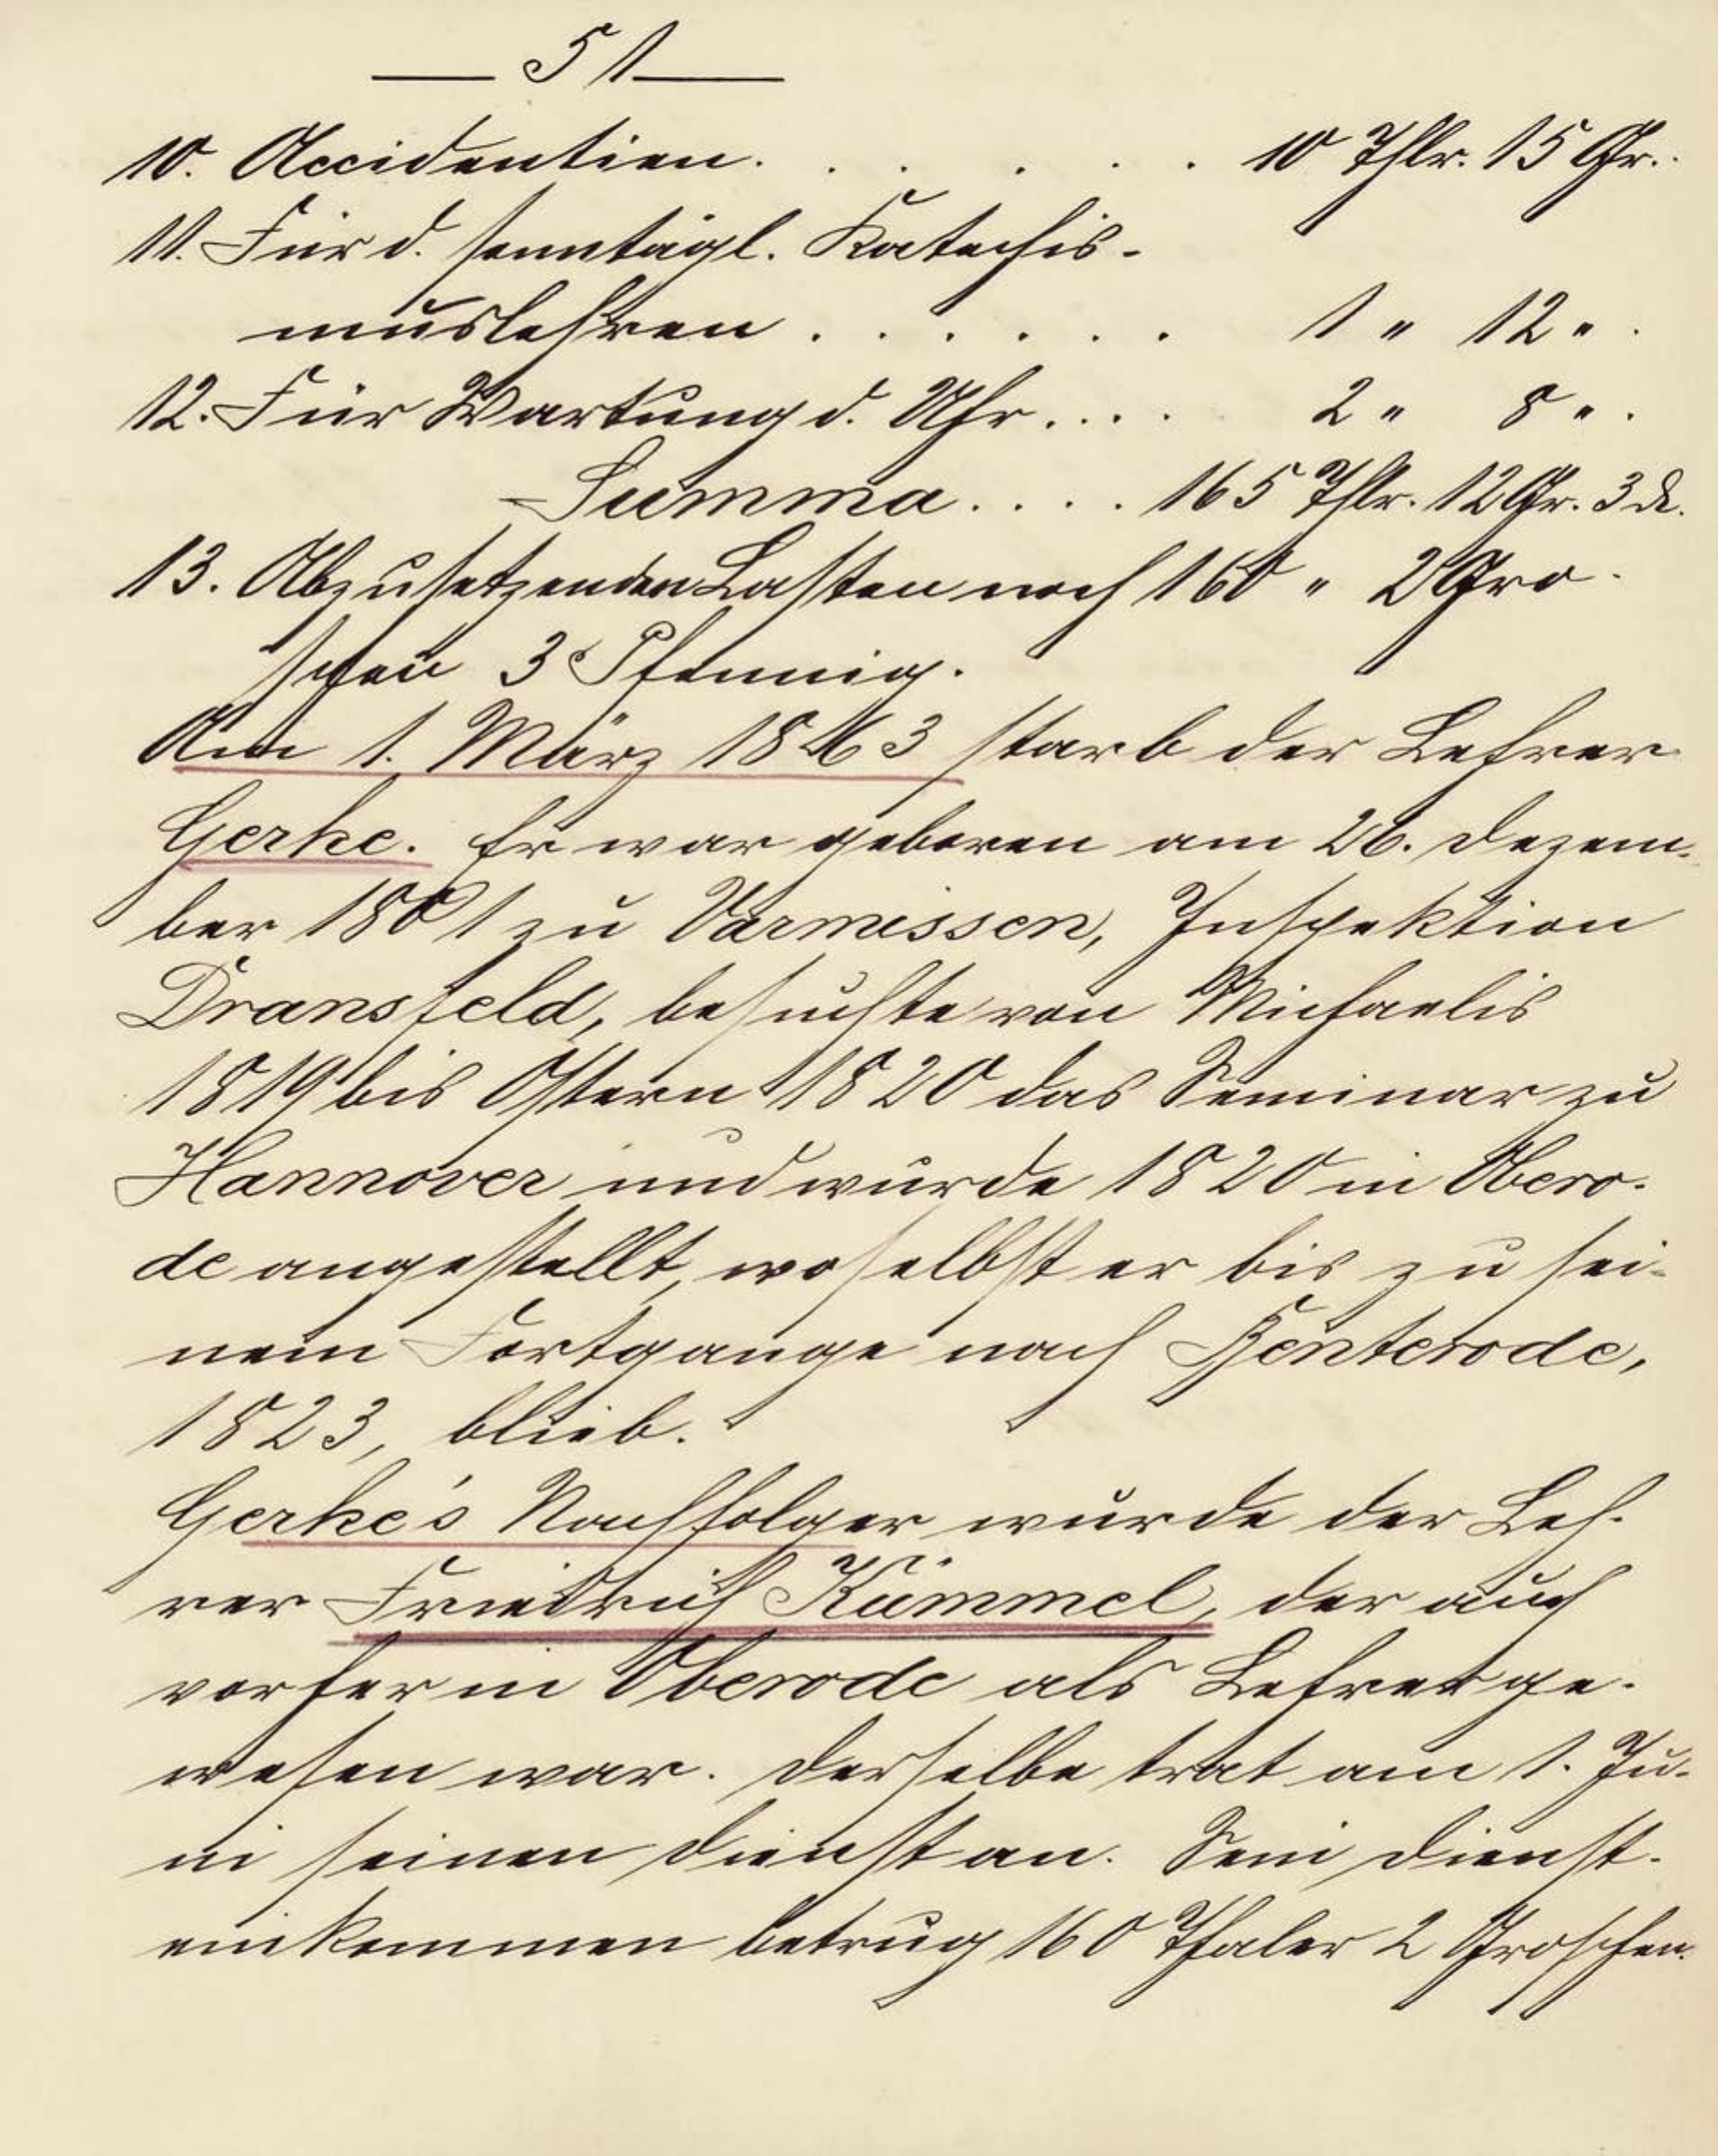 — 51 —
10. Accidentien. . . . . . 10 Thlr. 15 Gr.
11. Für d. sonntägl. Katechis-
muslehren . . . . . . 1 " 12 " .
12. Für Wartung d. Uhr. . . . 2 " 8 " .
Summa . . . . 165 Thlr. 12 Gr. 3 d.
13. Abzusetzenden Lasten noch 160 " 2 Gro-
schen 3 Pfennig.
Am 1. März 1863 starb der Lehrer
Gerke. Er war geboren am 26. Dezem-
ber 1801 zu Varmissen, Inspektion
Dransfeld, besuchte von Michaelis
1819 bis Ostern 1820 das Seminar zu
Hannover und wurde 1820 in Obero-
de angestellt, woselbst er bis zu sei-
nem Fortgange nach Benterode,
1823, blieb.
Gerke's Nachfolger wurde der Leh-
rer Friedrich Kümmel, der auch
vorher in Oberode als Lehrer ge-
wesen war. Derselbe trat am 1. Ju-
ni seinen Dienst an. Sein Dienst-
einkommen betrug 160 Thaler 2 Groschen.